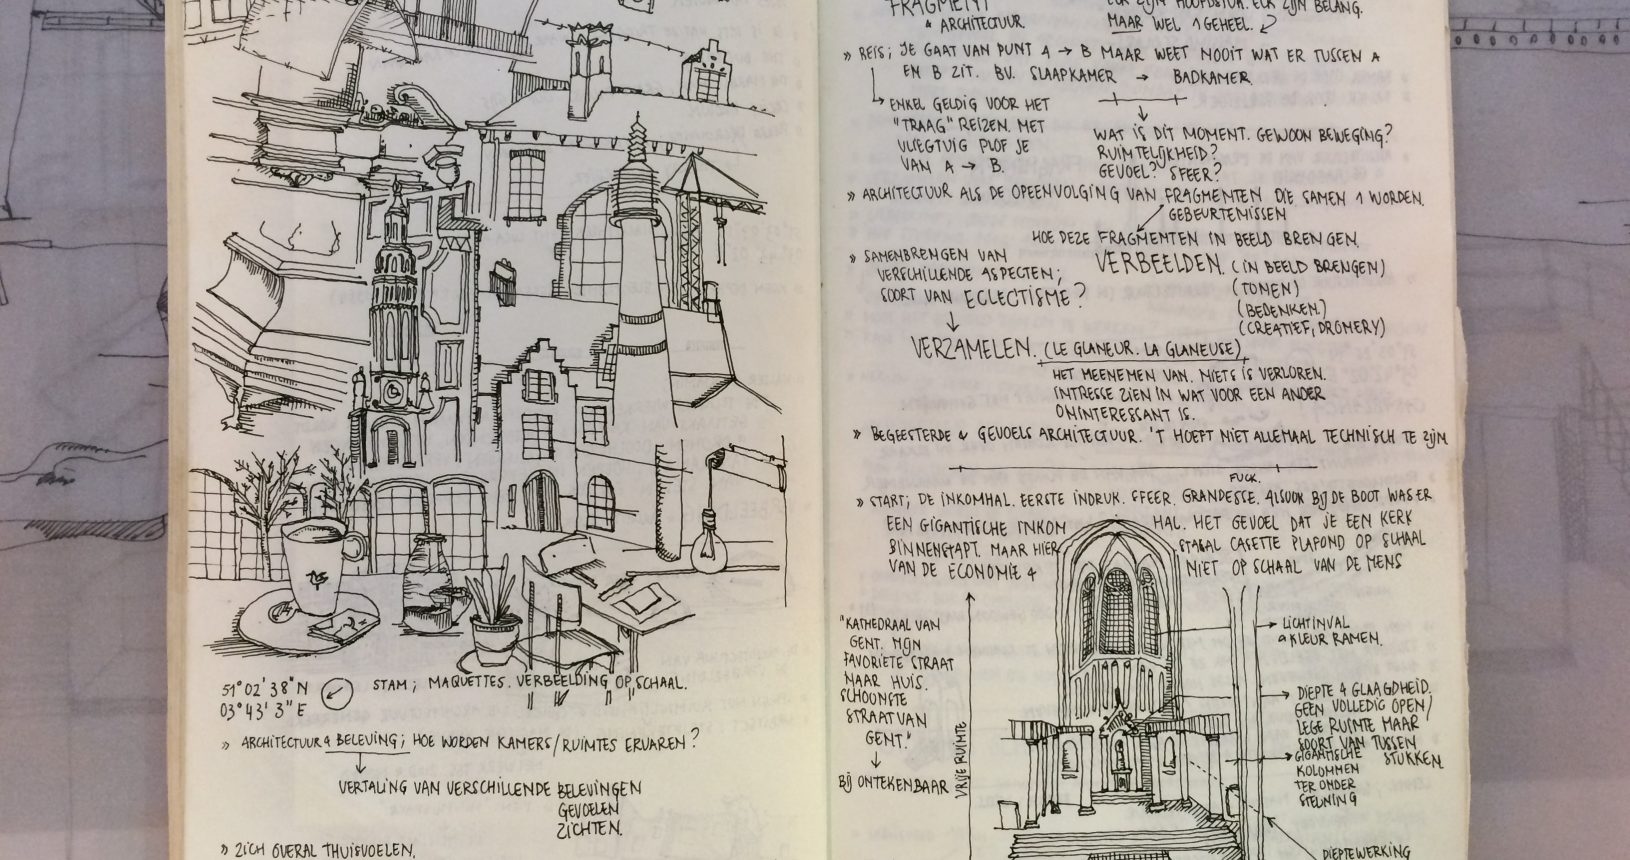 51° 02' 38" N
03° 43' 3" E
STAM; MAQUETTES. VERBEELDING OP SCHAAL.
» ARCHITECTUUR & BELEVING; HOE WORDEN KAMERS/RUIMTES ERVAREN?
VERTALING VAN VERSCHILLENDE BELEVINGEN
GEVOELEN
ZICHTEN.
» ZICH OVERAL THUISVOELEN.
FRAGMENT
& ARCHITECTUUR
ELK ZIJN HOOFDSTUK. ELK ZIJN BELANG.
MAAR WEL 1 GEHEEL.
» REIS; JE GAAT VAN PUNT A → B MAAR WEET NOOIT WAT ER TUSSEN A
EN B ZIT. BV. SLAAPKAMER → BADKAMER
ENKEL GELDIG VOOR HET
"TRAAG" REIZEN. MET
VLIEGTUIG PLOF JE
VAN A → B.
WAT IS DIT MOMENT. GEWOON BEWEGING?
RUIMTELIJKHEID?
GEVOEL? SFEER?
» ARCHITECTUUR ALS DE OPEENVOLGING VAN FRAGMENTEN DIE SAMEN 1 WORDEN.
GEBEURTENISSEN
HOE DEZE FRAGMENTEN IN BEELD BRENGEN.
» SAMENBRENGEN VAN
VERSCHILLENDE ASPECTEN;
SOORT VAN ECLECTISME?
VERBEELDEN. (IN BEELD BRENGEN)
(TONEN)
(BEDENKEN)
(CREATIEF, DROMERY)
VERZAMELEN. (LE GLANEUR. LA GLANEUSE)
HET MEENEMEN VAN. NIETS IS VERLOREN.
INTRESSE ZIEN IN WAT VOOR EEN ANDER
ONINTERESSANT IS.
» BEGEESTERDE & GEVOELS ARCHITECTUUR. 'T HOEFT NIET ALLEMAAL TECHNISCH TE ZIJN
FUCK.
» START; DE INKOMHAL. EERSTE INDRUK. SFEER. GRANDESSE. ALSOOK BIJ DE BOOT WAS ER
EEN GIGANTISCHE INKOM HAL. HET GEVOEL DAT JE EEN KERK
BINNENSTAPT. MAAR HIER STAAL CASETTE PLAFOND OP SCHAAL
VAN DE ECONOMIE & NIET OP SCHAAL VAN DE MENS
"KATHEDRAAL VAN
GENT. MIJN
FAVORIETE STRAAT
NAAR HUIS.
SCHOONSTE
STRAAT VAN
GENT."
BIJ ONTEKENBAAR
VRIJE RUIMTE
LICHTINVAL
& KLEUR RAMEN.
DIEPTE & GELAAGDHEID.
GEEN VOLLEDIG OPEN/
LEGE RUIMTE MAAR
SOORT VAN TUSSEN
STUKKEN.
GIGANTISCHE
KOLOMMEN
TER ONDER
STEUNING
DIEPTEWERKING